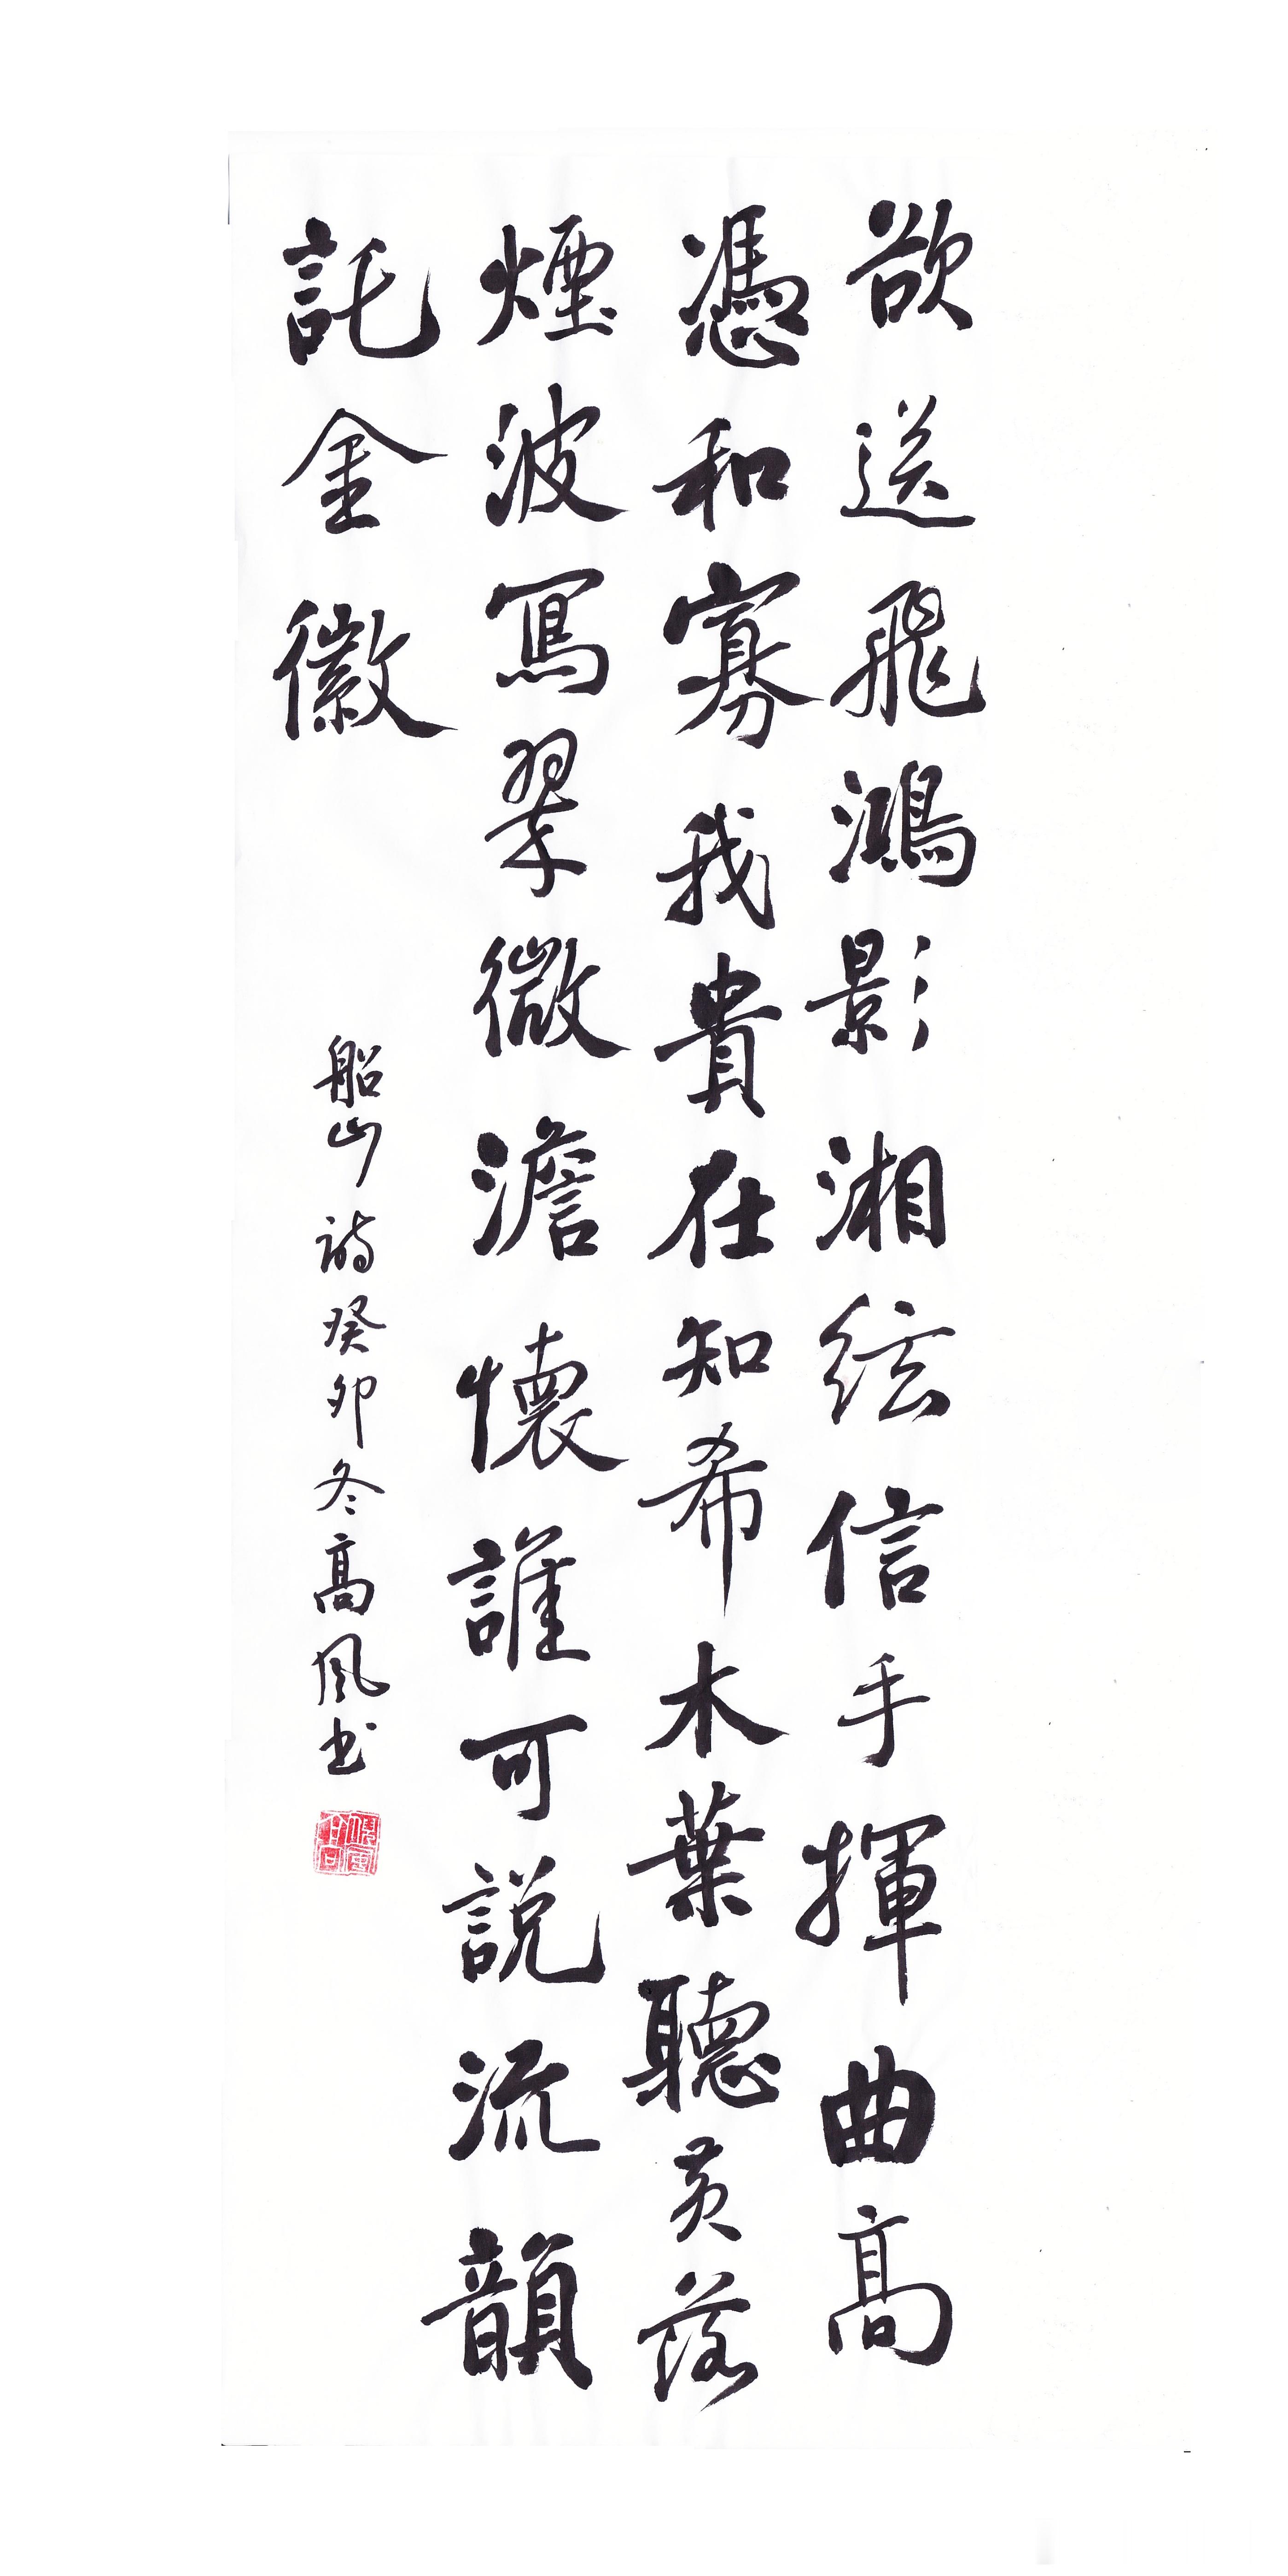 欲送飛鴻影湘絃信手揮曲高
憑和寡我貴在知希木葉聽黃落
煙波寫翠微澹懷誰可說流韻
託金徽
船山詩癸卯冬高風书